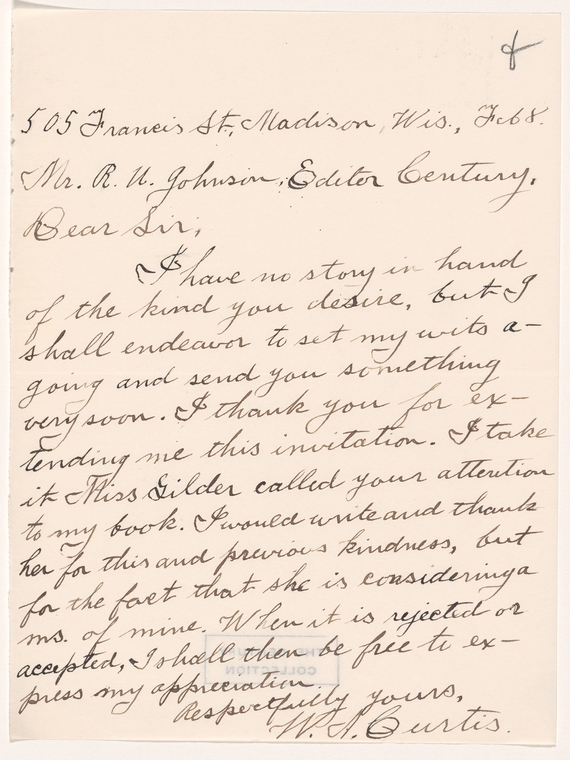 505 Francis St., Madison, Wis., Feb 8.
Mr. R. U. Johnson, Editor Century,
Dear Sir,
I have no story in hand
of the kind you desire, but I
shall endeavor to set my wits a-
going and send you something
very soon. I thank you for ex-
tending me this invitation. I take
it Miss Gilder called your attention
to my book. I would write and thank
her for this and previous kindness, but
for the fact that she is considering a
ms. of mine. When it is rejected or
accepted, I shall then be free to ex-
press my appreciation.
Respectfully yours,
W. A. Curtis.